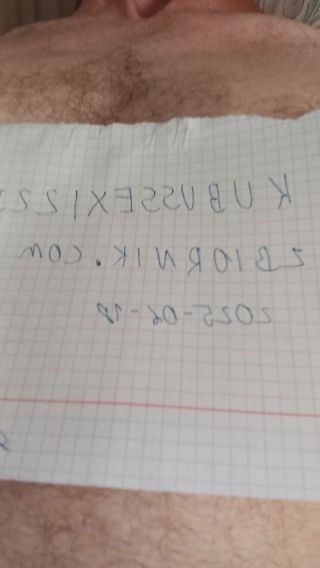 KUBUSSEX1223
ZBIORNIK.COM
2025-06-18